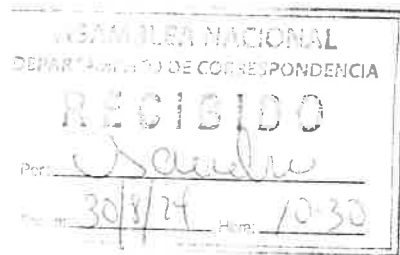 ASAMBLEA NACIONAL
DEPARTAMENTO DE CORRESPONDENCIA
RECIBIDO
Por: Sandra
30/8/24 Hora: 10:30